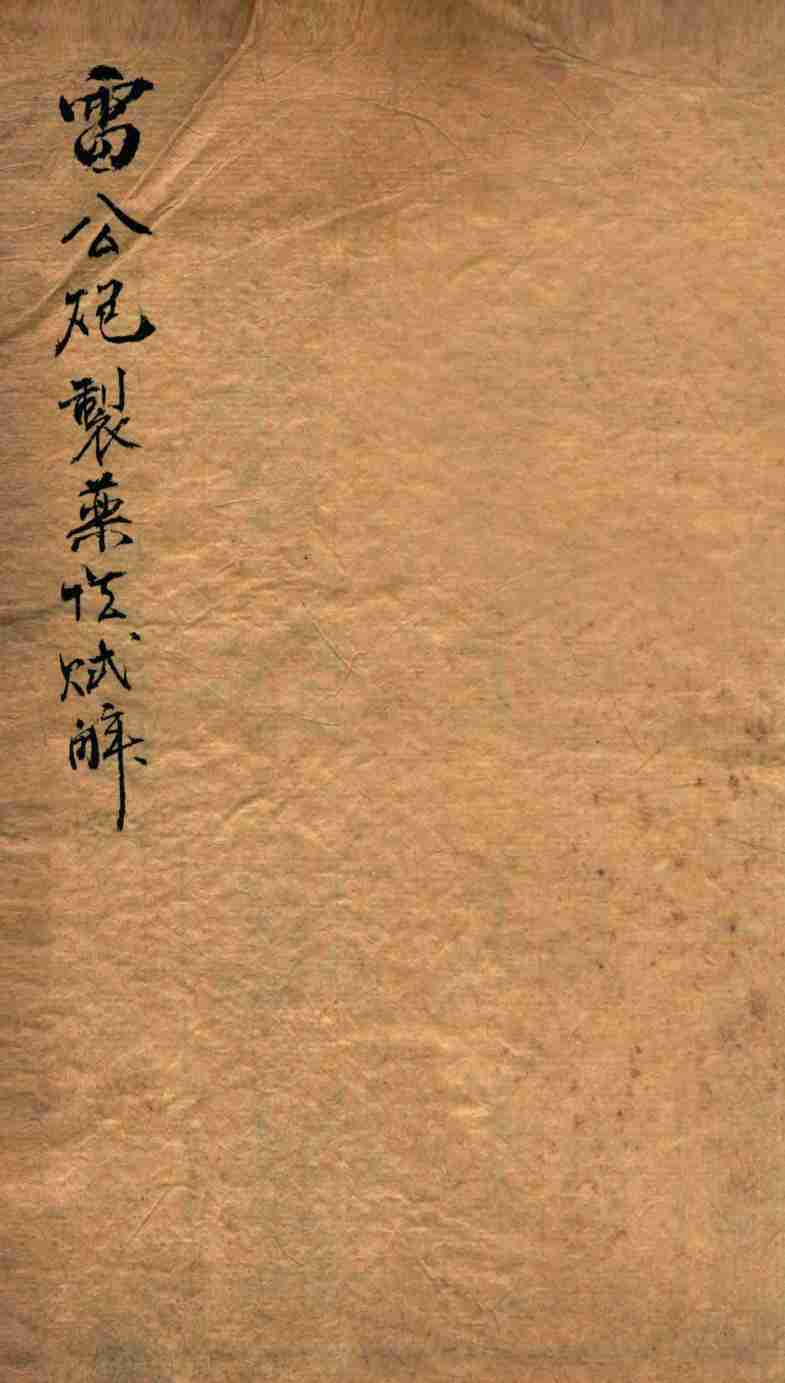 雷公炮製藥性賦解